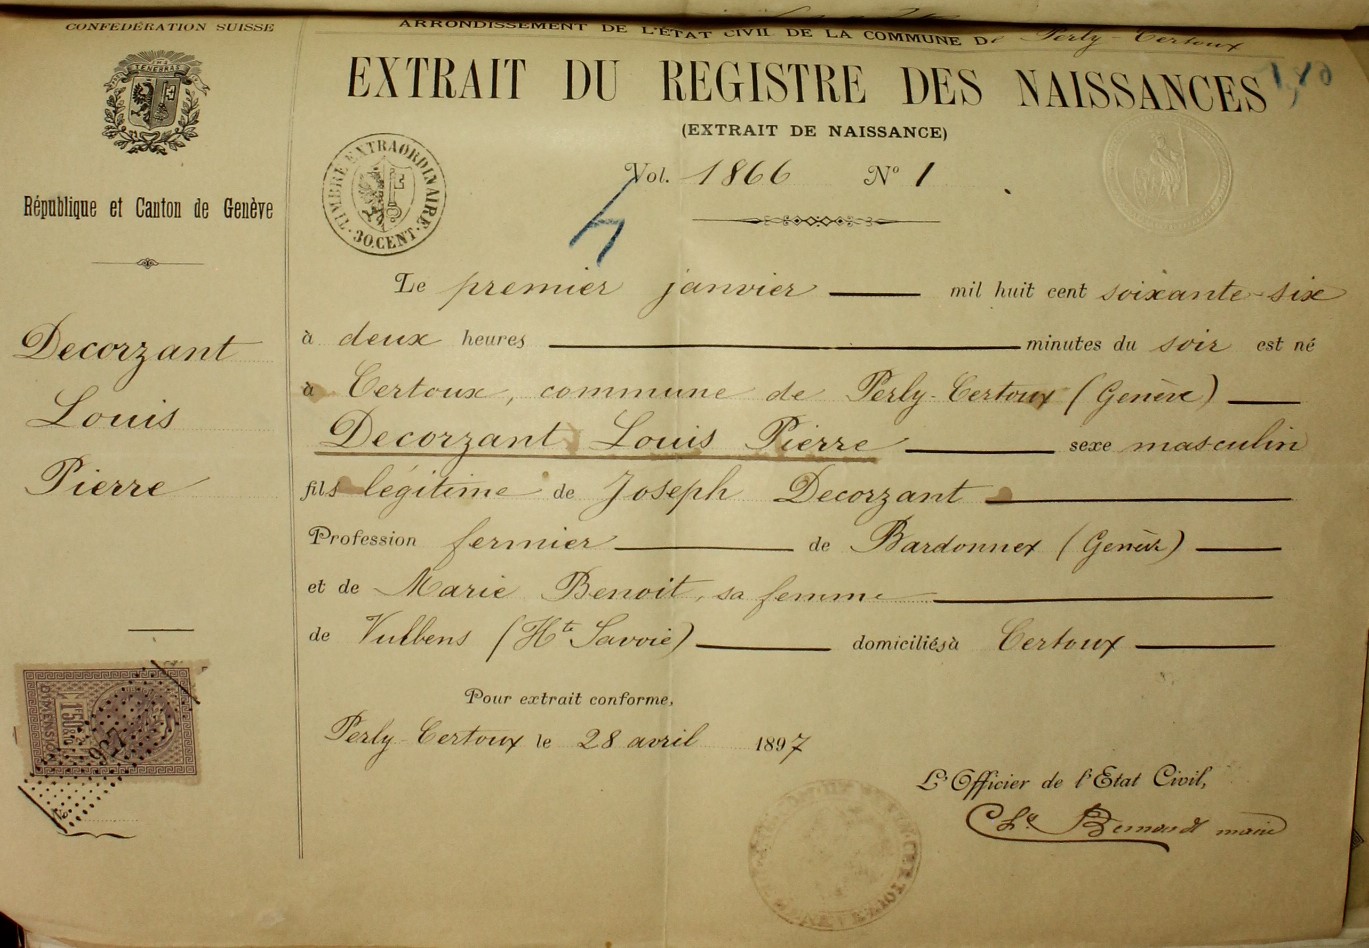 CONFÉDÉRATION SUISSE
TENEBRAS
République et Canton de Genève
Decorzant
Louis
Pierre
ARRONDISSEMENT DE L'ÉTAT CIVIL DE LA COMMUNE De Perly-Certoux
EXTRAIT DU REGISTRE DES NAISSANCES
(EXTRAIT DE NAISSANCE)
TIMBRE EXTRAORDINAIRE
30.CENT.
Vol. 1866 N° 1
Le premier janvier mil huit cent soixante-six
à deux heures minutes du soir est né
à Certoux, commune de Perly-Certoux (Genève)
Decorzant Louis Pierre sexe masculin
fils légitime de Joseph Decorzant
Profession fermier de Bardonnex (Genève)
et de Marie Benoit, sa femme
de Vulbens (Hte Savoie) domiciliés à Certoux
Pour extrait conforme,
Perly-Certoux le 28 avril 1897
L'Officier de l'Etat Civil,
maire
DIMENSION